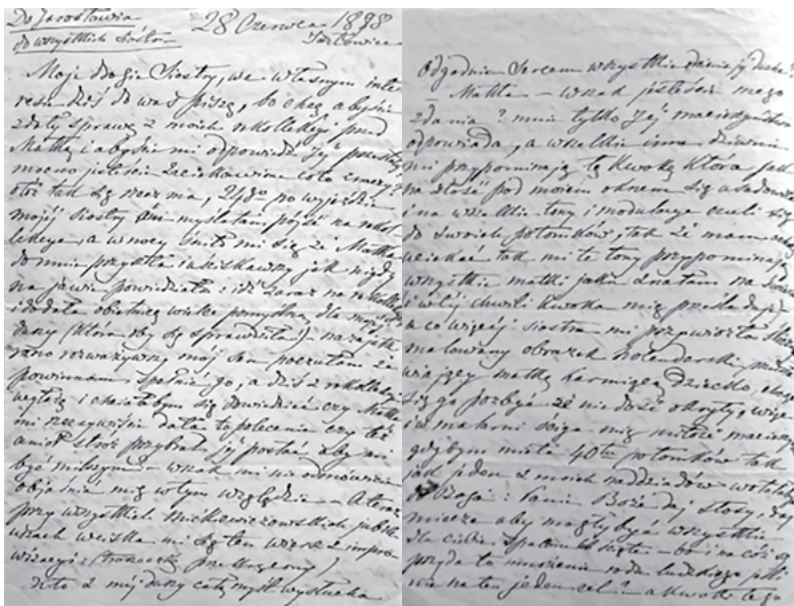 Do Jarosławia
do wszystkich Sióstr
28 Czerwca 1898
Jazłowiec
Moje drogie Siostry, we własnym inte
resie dziś do was piszę, bo chcę abyście
zdały sprawę z moich rekollekcyi przed
Matką i abyście mi odpowiedź Jej przesłały
mocno jesteście zaciekawione co to znaczy?
otóż tak się rzecz ma, 24go po wyjeździe
mojej siostry nie myślałam pójść na rekol
lekcye, a w nocy śniło mi się że Matka
do mnie przyszła i uściskawszy jak nigdy
na jawie powiedziała: idź zaraz na rekollekcye
i dodała obietnicę wielce pomyślną dla mojej
duszy (która oby się sprawdziła) – nazajutrz
rano rozważywszy mój sen poczułam że
powinnam spełnić go, a dziś z rekollekcyi
wyszłam i chciałabym się dowiedzieć czy Matka
mi rzeczywiście dała to polecenie czy też
anioł stróż przybrał jej postać aby mi
być milszym – wszak mi nie odmówicie
objaśnić mię w tym względzie – A teraz
przy wszystkich mickiewiczowskich jubile
uszach wciska mi się ten wiersz z impro
wizacyi (troszeczkę przekręcony)
Kto z mej duszy całą myśl wysłucha
Odgadnie sercem wszystkie dzieje jej ducha?
– Matka – wszak jesteście mego
zdania? mnie tylko Jej macierzyństwo
odpowiada, a wszelkie inne dziwnie
mi przypominają tę kwokę która jak
na złość pod moiem oknem się usadowiła
i na wszelkie tony i modulacye czuli się
do swoich potomków, tak że mam ochotę
uciekać tak mi te tony przypominają
wszystkie matki jakie znałam na świecie
i w tej chwili kwoka mię prześladuje
a co więcej siostra mi przywiozła
malowany obrazek holenderski, przedsta
wiający matkę karmiącą dziecko, chcąc
się go pozbyć że nie dość okryty, więc
i w malarni ściga mię miłość macierzyńska
gdybym miała 40tu potomków tak
jak jeden z moich naddziadów wołałabym
do Boga: Panie Boże daj stosy, daj
miecze aby mogły być wszystkie
dla ciebie spalone i ścięte – bo i na cóż się
przyda to mnożenie rodu ludzkiego jeśli
nie na ten jeden cel? a kwokę tego